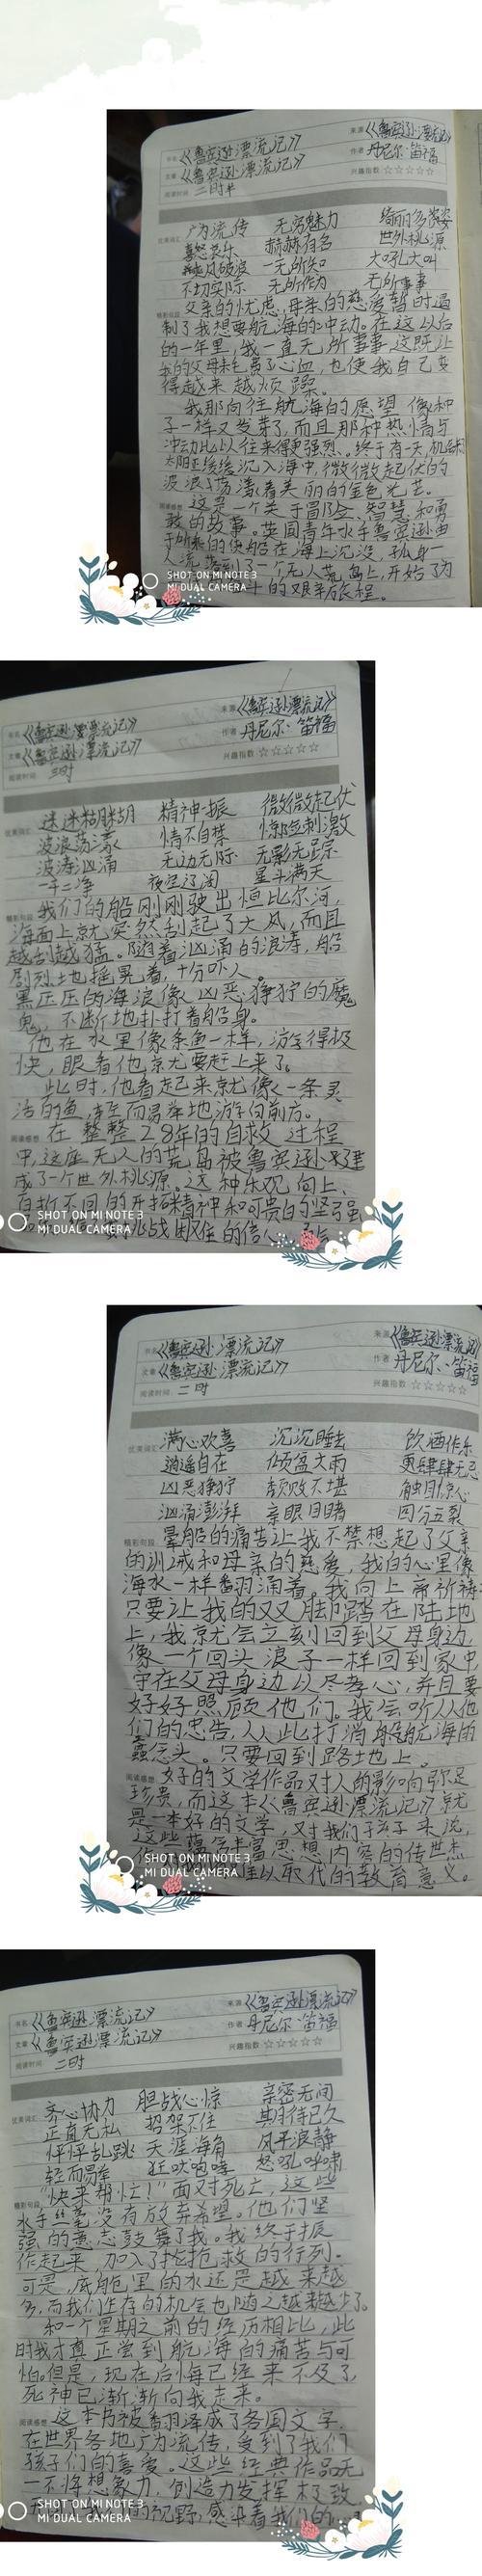 书名《鲁宾逊漂流记》 来源《鲁宾逊漂流记》
文章《鲁宾逊漂流记》 作者 丹尼尔·笛福
阅读时间 二时半 兴趣指数 ☆☆☆☆☆
优美词汇 广为流传 无穷魅力 绮丽多姿
喜怒哀乐 赫赫有名 世外桃源
乘风破浪 一无所知 大吼大叫
不切实际 无所作为 无所事事
精彩句段 父亲的忧虑,母亲的慈爱暂时遏
制了我想要航海的冲动。在这以后
的一年里,我一直无所事事这既让
我的父母耗费了心血,也使我自己变
得越来越烦躁。
我那向往航海的愿望像种
子一样又发芽了,而且那种热情与
冲动比以往来得更强烈。终于有一天,机会来
太阳正缓缓沉入海中,微微起伏的
波浪荡漾着美丽的金色光芒。
阅读感想 这是一个关于冒险、智慧和勇
敢的故事。英国青年水手鲁宾逊由
于所乘的船在海上沉没,孤身一
人流落到一个无人荒岛上,开始了为
的艰辛旅程。
SHOT ON MI NOTE 3
MI DUAL CAMERA
书名《鲁宾逊漂流记》 来源《鲁宾逊漂流记》
文章《鲁宾逊漂流记》 作者 丹尼尔·笛福
阅读时间 三时 兴趣指数 ☆☆☆☆☆
优美词汇 迷迷糊糊 精神一振 微微起伏
波浪荡漾 情不自禁 惊险刺激
波涛汹涌 无边无际 无影无踪
一干二净 夜空辽阔 星斗满天
精彩句段 我们的船刚刚驶出恒比尔河,
海面上就突然刮起了大风,而且
越刮越猛。随着汹涌的浪涛,船
剧烈地摇晃着,十分吓人。
黑压压的海浪像凶恶狰狞的魔
鬼,不断地扑打着船身。
他在水里像条鱼一样,游得极
快,眼看他就要赶上来了。
此时,他看起来就像一条灵
活的鱼,轻而易举地游向前方。
阅读感想 在整整28年的自救过程
中,这座无人的荒岛被鲁宾逊建
成了一个世外桃源。这种乐观向上、
百折不回的开拓精神和可贵的坚强
挑战困难的信心
SHOT ON MI NOTE 3
MI DUAL CAMERA
书名《鲁宾逊漂流记》 来源《鲁宾逊漂流记》
文章《鲁宾逊漂流记》 作者 丹尼尔·笛福
阅读时间 二时 兴趣指数 ☆☆☆☆☆
优美词汇 满心欢喜 沉沉睡去 饮酒作乐
逍遥自在 倾盆大雨 更肆肆无忌
凶恶狰狞 颓败不堪 触目惊心
汹涌澎湃 亲眼目睹 四分五裂
精彩句段 晕船的痛苦让我不禁想起了父亲
的训诫和母亲的慈爱,我的心里像
海水一样翻涌着。我向上帝祈祷
只要让我的双脚踏在陆地
上,我就会立刻回到父母身边,
像一个回头浪子一样回到家中
守在父母身边以尽孝心,并且要
好好照顾他们。我会听从他
们的忠告,从此打消航海的
蠢念头。只要回到陆地上。
阅读感想 好的文学作品对人的影响弥足
珍贵,而这本《鲁宾逊漂流记》就
是一本好的文学,对我们孩子来说,
这些蕴含丰富思想内容的传世杰
难以取代的教育意义。
SHOT ON MI NOTE 3
MI DUAL CAMERA
书名《鲁宾逊漂流记》 来源《鲁宾逊漂流记》
文章《鲁宾逊漂流记》 作者 丹尼尔·笛福
阅读时间 二时 兴趣指数 ☆☆☆☆☆
优美词汇 齐心协力 胆战心惊 亲密无间
正直无私 招架不住 期待已久
怦怦乱跳 天涯海角 风平浪静
轻而易举 狂吠咆哮 怒吼呼啸
精彩句段 “快来帮忙!”面对死亡,这些
水手丝毫没有放弃希望。他们坚
强的意志鼓舞了我。我终于振
作起来,加入了抢救的行列。
可是,底舱里的水还是越来越
多,而我们生存的机会也随之越来越少了。
和一个星期之前的经历相比,此
时我才真正尝到航海的痛苦与可
怕。但是,现在后悔已经来不及了,
死神已渐渐向我走来。
阅读感想 这本书被翻译成了各国文字,
在世界各地广为流传,受到了我们
孩子们的喜爱。这些经典作品无
一不将想象力、创造力发挥极致
我们的视野,感染着我们的
SHOT ON MI NOTE 3
MI DUAL CAMERA